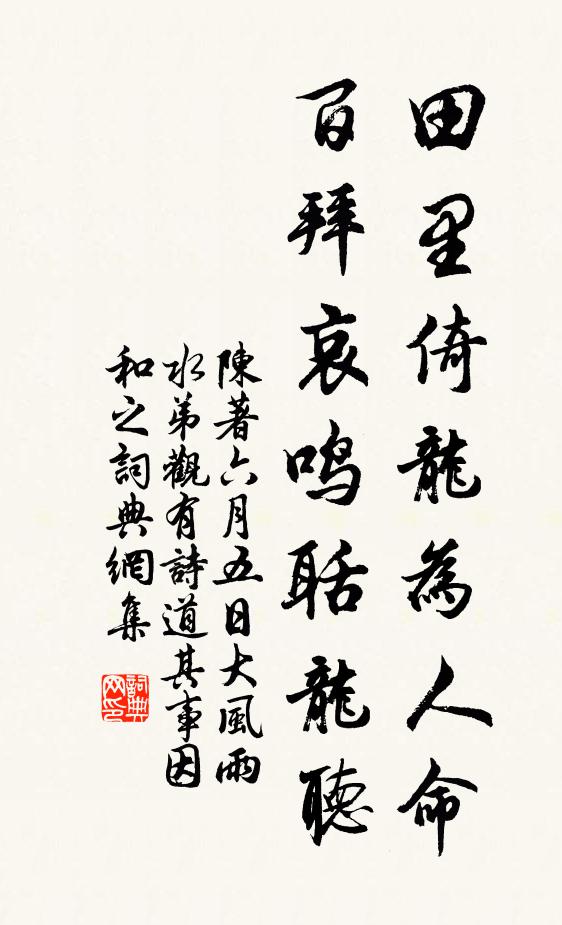 田里倚龍為人命
百拜哀鳴聒龍聽
陳著六月五日大風雨
水弟觀有詩道其事因
和之詞典網集
詞典
网印